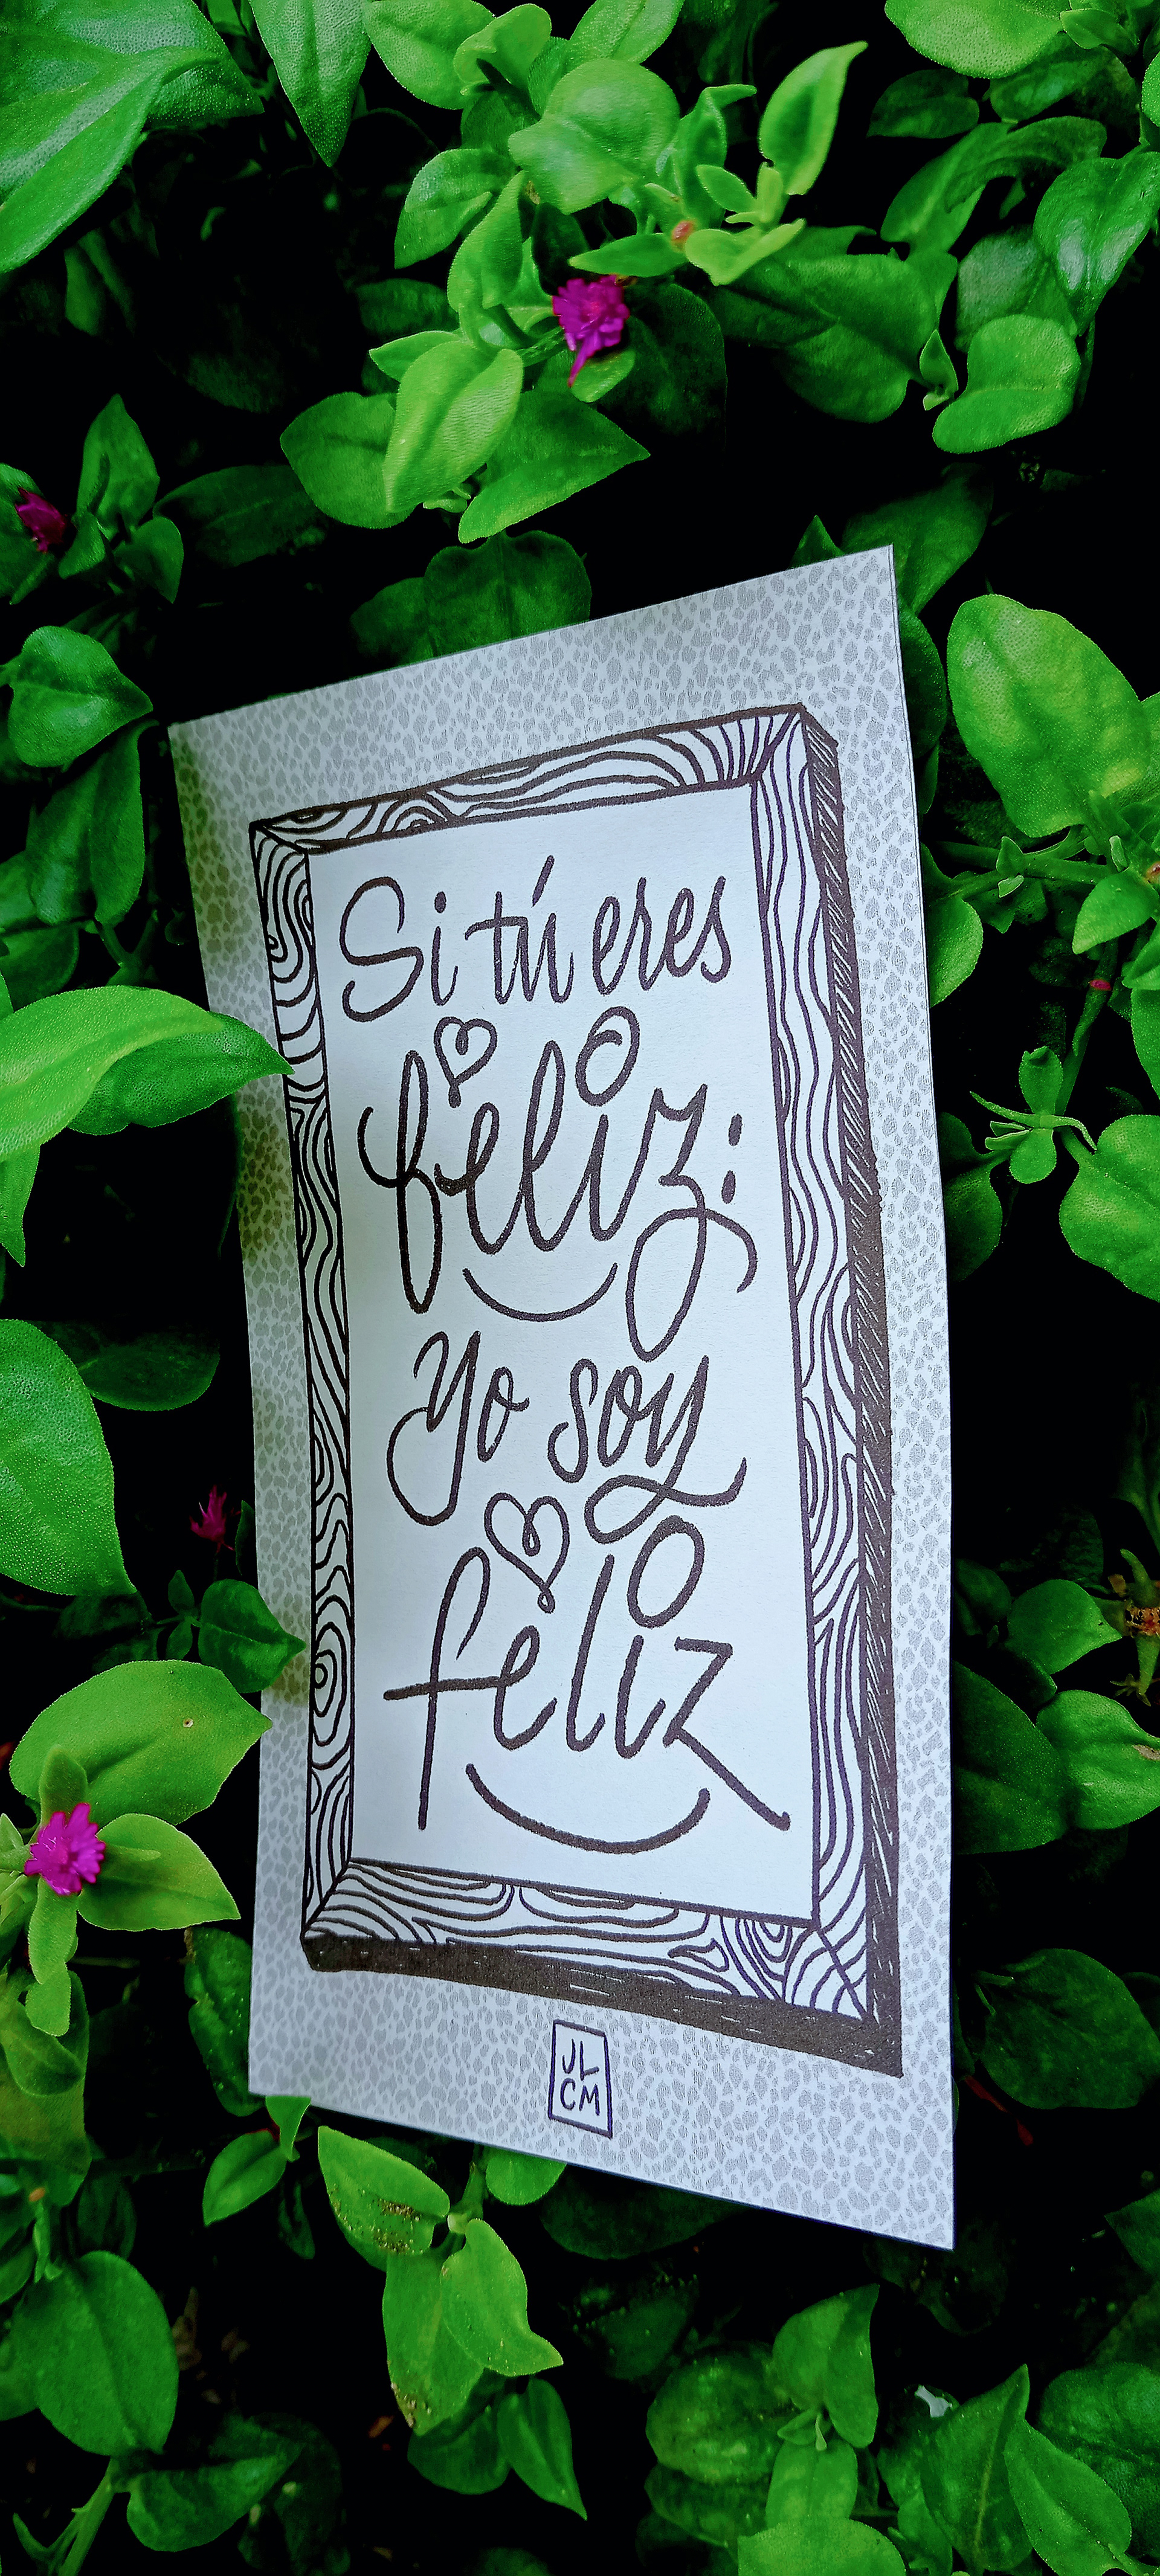 Si tú eres
feliz;
Yo soy
feliz
JL
CM